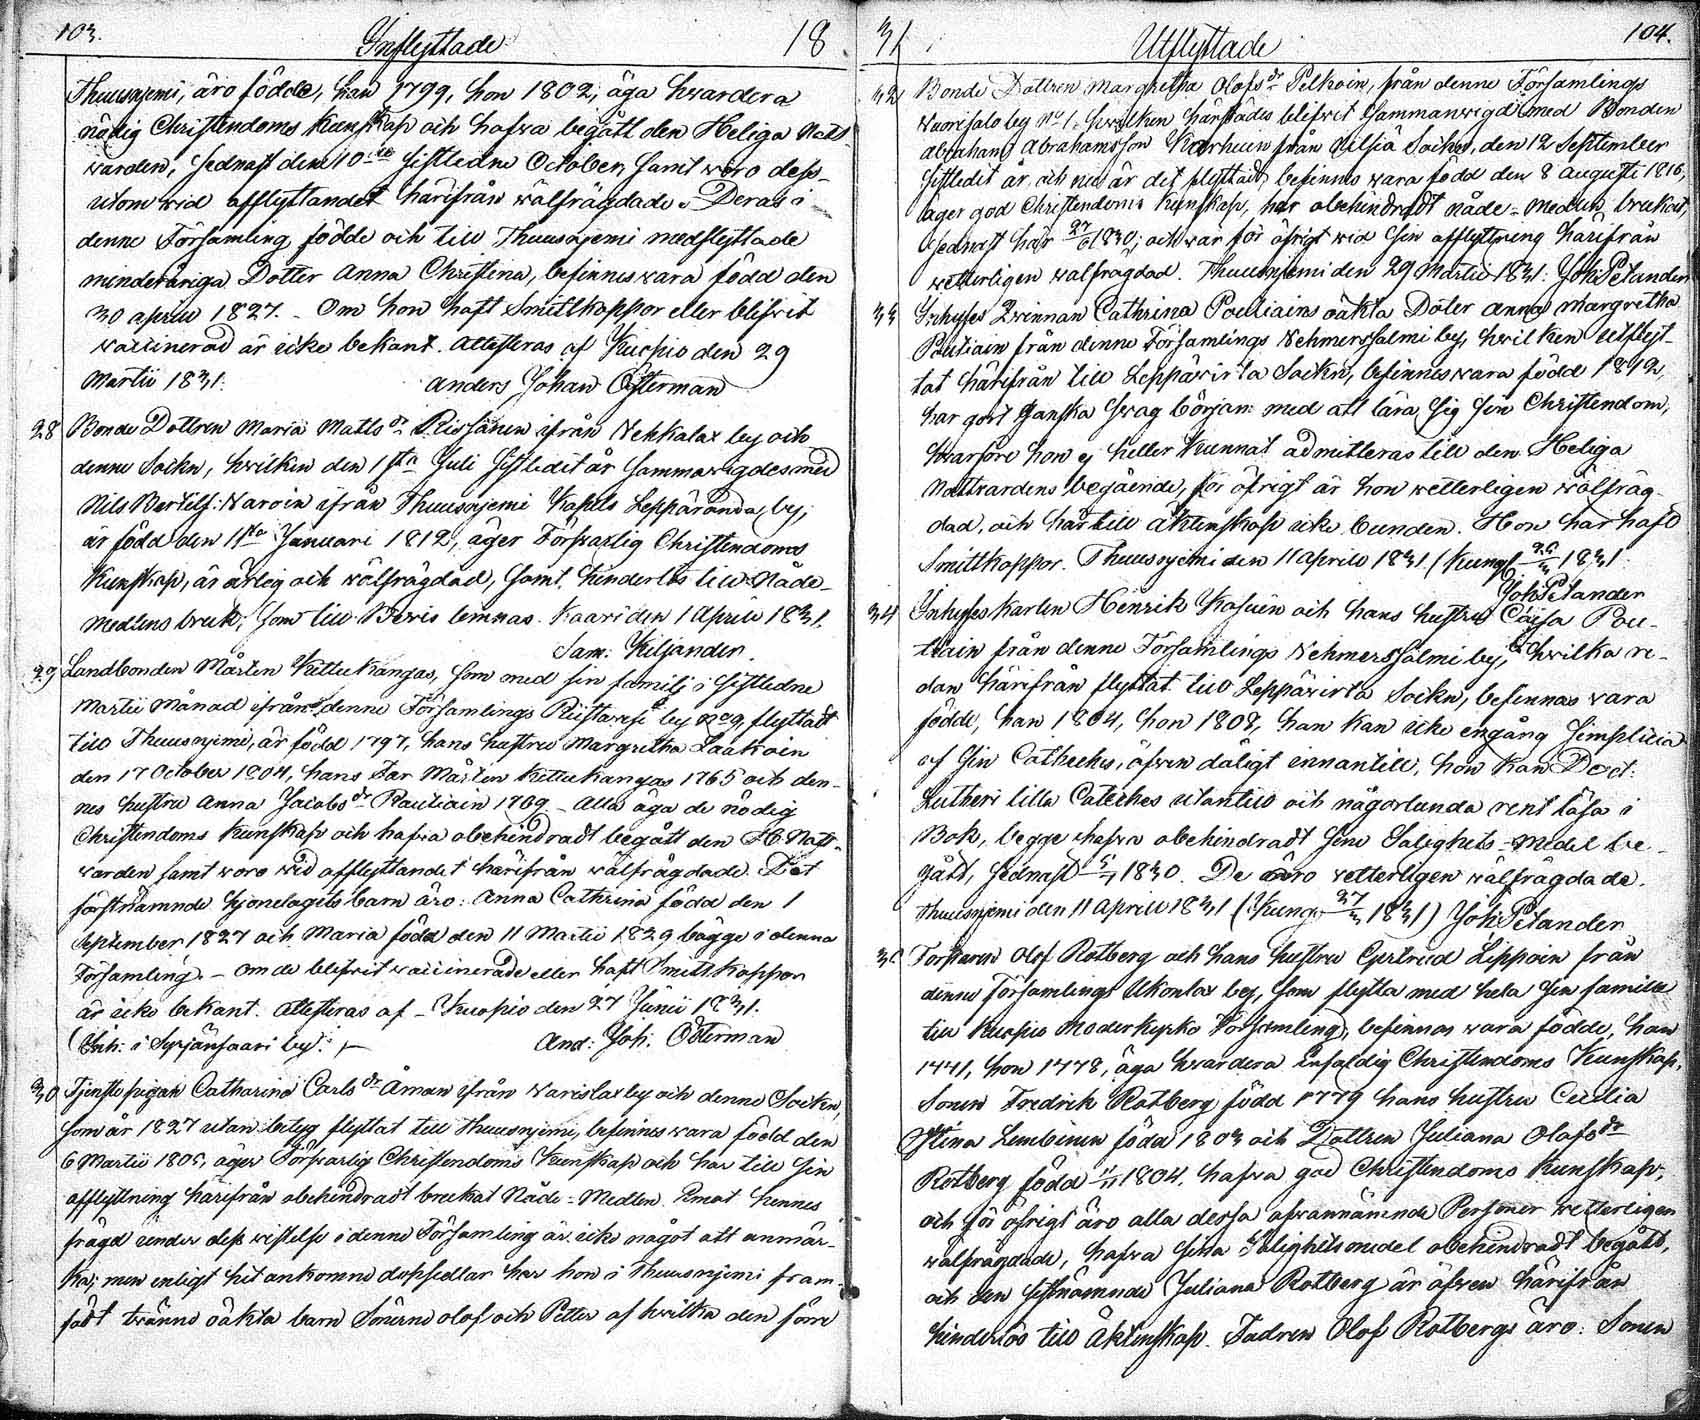 103.
Inflyttade
18
Thuusniemi, äro födde, han 1799, hon 1802, äga hwardera
nödig Christendoms Kunskap och hafwa begått den Heliga Natt
warden, sednast den 10:de sistledne October, samt woro dess-
utom wid afflyttandet härifrån wälfrägdade. Deras i
denne Församling födde och till Thuusniemi medflyttade
minderåriga Dotter Anna Christina, befinnes wara född den
30 April 1827. - Om hon haft Smittkoppor eller blifwit
waccinerad är icke bekant. Attesteras af Kuopio den 29
Martii 1831.
Anders Johan Österman
28 Bonde Dottren Maria Matts dr Rissanen ifrån Wehkalax by och
denne Sockn, hwilken den 1sta Juli sistledit år sammanvigdes med
Nils Bertilss: Waroin ifrån Thuusniemi Kapells Leppäranda by,
är född den 1sta Januari 1812, äger Förswarlig Christendoms
Kunskap, är ärlig och wälfrägdad, samt hinderlös till Nåde-
medlens bruk; som till Bewis lemnas. Kaavi den 1 April 1831.
Sam: Kiljander
29 Landbonden Mårten Kettukangas, som med sin familj i sistledne
Martii Månad ifrån denne Församlings Riistavesi by No 9, flyttadt
till Thuusniemi, är född 1797, hans hustru Margretha Laakoin
den 17 October 1804, hans Far Mårten Kettukangas 1765 och den-
nes hustru Anna Jacobs dr Rautiain 1769 - Alla äga de nödig
Christendoms Kunskap och hafwa obehindradt begått den H. Natt-
warden samt woro wid afflyttandet härifrån wälfrägdade. Det
förstnämnde Hjonelagets barn äro: Anna Cathrina född den 1
September 1827 och Maria född den 11 Martii 1829 bägge i denna
Församling. - Om de blifwit waccinerade eller haft Smittkoppor
är icke bekant. Attesteras af - Kuopio den 27 Junii 1831.
(Inh: i Syrjänsaari by.)
And: Joh. Österman
30 Tjenstepigan Catharina Carls dr Åman ifrån Warislax by och denne Socken,
som år 1827 utan betyg flyttat till Thuusniemi, befinnes wara född den
6 Martii 1805, äger Förswarlig Christendoms Kunskap och har till sin
afflyttning härifrån obehindradt brukat Nåde-Medlen. Emot hennes
frägd under dess wistelse i denne Församling är icke något att anmär-
ka; men enligt hit ankomne dopsedlar har hon i Thuusniemi fram-
födt tvänne oäkta barn Sönerne Olof och Petter af hwilka den förre
31
Utflyttade
104.
32 Bonde Dottren Margretha Olofs dr Pelkoin, från denne Församlings
Waorisalo by No 1, hwilken härstädes blifwit Sammanwigd med Bonden
Abraham Abrahamsson Karhuun från Nilsiä Socken, den 12 September
sistledit år, och nu är dit flyttad, befinnes wara född den 8 Augusti 1816,
äger god Christendoms Kunskap, har obehindradt nåde-medlen brukat,
sednast här 27/6 1830; och war för öfrigt wid sin afflyttning härifrån
wetterligen wälfrägdad. Thuusniemi den 29 Martii 1831. Joh: Pelander
33 Inhyses Qwinnan Cathrina Poutiains oäkta Doter Anna Margretha
Poutiain från denne Församlings Wehmerssalmi by, hwilken utflyt-
tat härifrån till Leppäwirta Sockn, befinnes wara född 1812,
har gort ganska swag början med att lära sig sin Christendom,
hwarföre hon ej heller kunnat admitteras till den Heliga
Nattwardens begående, för öfrigt är hon wetterligen wälfräg-
dad, och här till äktenskap icke bunden. Hon har haft
Smittkoppor. Thuusniemi den 11 April 1831 (Kung 1831
Joh: Pelander
34 Inhyses Karlen Henrik Kosuin och hans hustru Caisa Pou-
tiain från denne Församlings Wehmerssalmi by, hwilka re-
dan härifrån flyttat till Leppäwirta Sockn, befinnas wara
födde, han 1804, hon 1808, han kan icke engång Simplicia
af sin Catheches, äfwen dåligt innantill, hon kan Doct:
Lutheri lilla Cateches utantill och någorlunda rent läsa i
Bok, begge hafwa obehindradt sine Salighets-Medel be-
gått, sednast 1830. De äro wetterligen wälfrägdade.
Thuusniemi den 11 April 1831 (Kung 27/3 1831) Joh: Pelander
35 Torparen Olof Rotberg och hans hustru Gertrud Lippoin från
denne Församlings Ukonlax by, som flytta med hela sin familie
till Kuopio Moderkyrko Församling, befinnas wara födde, han
1741, hon 1778, äga hwardera enfaldig Christendoms Kunskap,
Sonen Fredrik Rotberg född 1779 hans hustru Cecilia
Stina Lembinen född 1803 och Dottren Juliana Olofs dr
Rotberg född 1804, hafwa god Christendoms Kunskap,
och för öfrigt äro alla dessa ofvannämnde Personer wetterligen
wälfrägdade, hafwa sina Salighetsmedel obehindradt begått,
och den sistnämnde Juliana Rotberg är äfwen härifrån
hinderlös till Äktenskap. Fadren Olof Rotbergs äro: Sonen